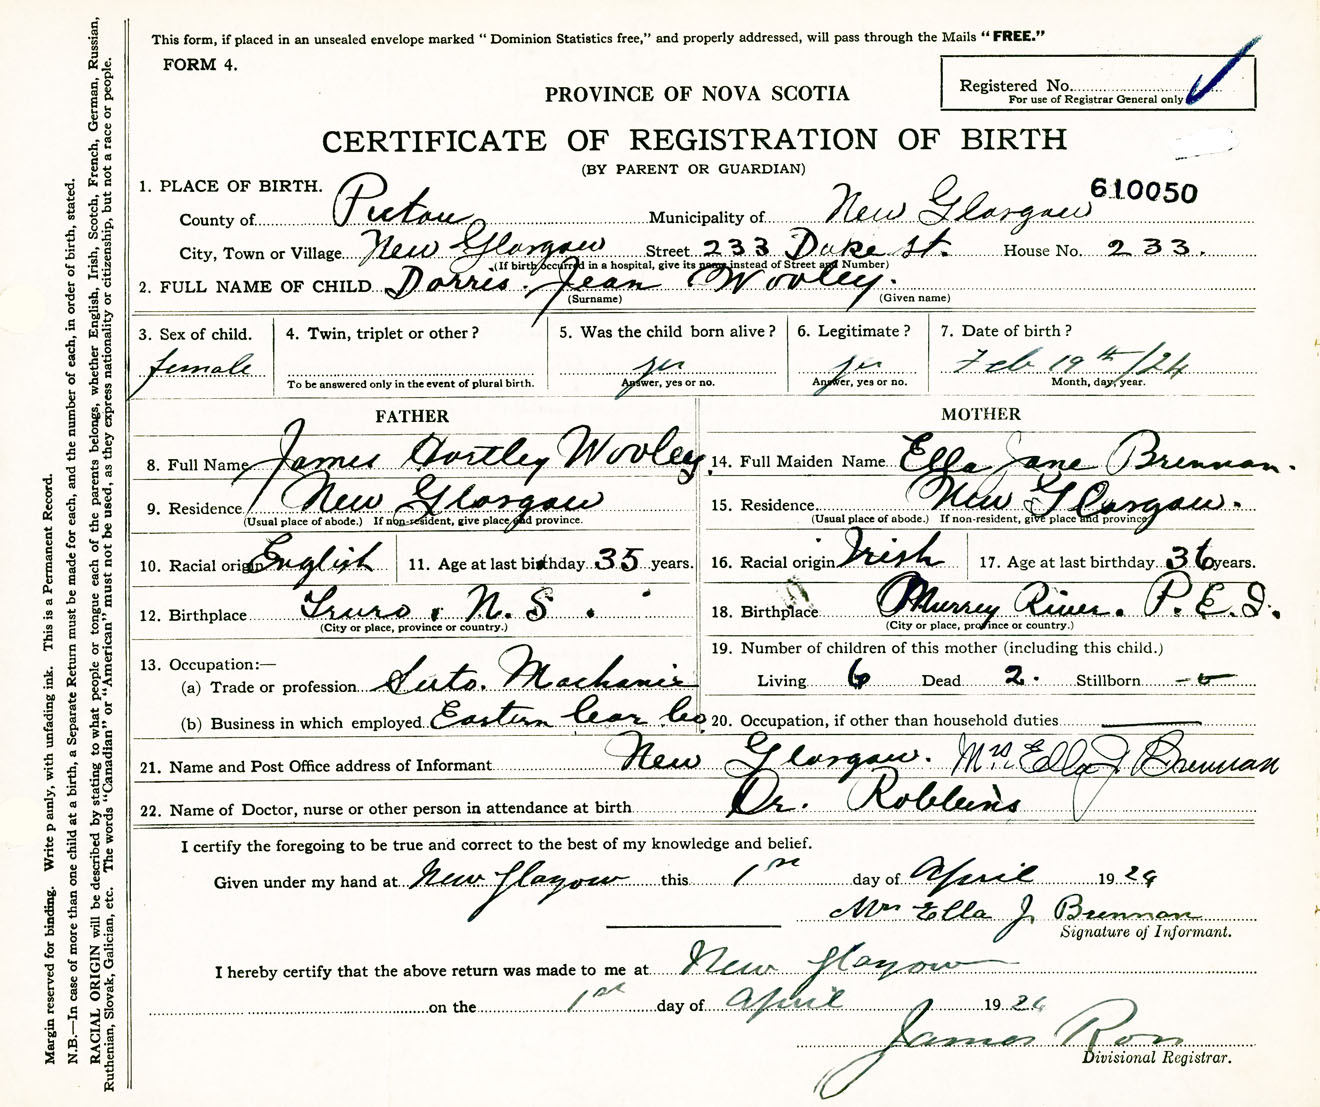 This form, if placed in an unsealed envelope marked “ Dominion Statistics free,” and properly addressed, will pass through the Mails “FREE.”
FORM 4.
Registered No.
For use of Registrar General only
PROVINCE OF NOVA SCOTIA
CERTIFICATE OF REGISTRATION OF BIRTH
(BY PARENT OR GUARDIAN)
610050
1. PLACE OF BIRTH.
County of Pictou Municipality of New Glasgow
City, Town or Village New Glasgow Street 233 Duke St. House No. 233.
(If birth occurred in a hospital, give its name instead of Street and Number)
2. FULL NAME OF CHILD Dorris. Jean Wooley.
(Surname) (Given name)
3. Sex of child. 4. Twin, triplet or other ? 5. Was the child born alive ? 6. Legitimate ? 7. Date of birth ?
female yes yes Feb 19th/24
To be answered only in the event of plural birth. Answer, yes or no. Answer, yes or no. Month, day, year.
FATHER MOTHER
8. Full Name James Hartley Wooley. 14. Full Maiden Name Ella Jane Brennan.
9. Residence New Glasgow 15. Residence New Glasgow.
(Usual place of abode.) If non-resident, give place and province. (Usual place of abode.) If non-resident, give place and province
10. Racial origin English 11. Age at last birthday 35 years. 16. Racial origin Irish 17. Age at last birthday 36 years.
12. Birthplace Truro, N.S. 18. Birthplace Murrey River. P.E.I.
(City or place, province or country.) (City or place, province or country.)
13. Occupation:— 19. Number of children of this mother (including this child.)
(a) Trade or profession Auto. Machanic Living 6 Dead 2. Stillborn -0-
(b) Business in which employed Eastern Car Co 20. Occupation, if other than household duties
21. Name and Post Office address of Informant New Glasgow. Mrs Ella J. Brennan
22. Name of Doctor, nurse or other person in attendance at birth Dr. Robbins
I certify the foregoing to be true and correct to the best of my knowledge and belief.
Given under my hand at New Glasgow this 1st day of April 19
Mrs Ella J. Brennan
Signature of Informant.
I hereby certify that the above return was made to me at New Glasgow
on the 1st day of April 19
James Ron
Divisional Registrar.
Margin reserved for binding. Write p ainly, with unfading ink. This is a Permanent Record.
N.B.—In case of more than one child at a birth, a Separate Return must be made for each, and the number of each, in order of birth, stated.
RACIAL ORIGIN will be described by stating to what people or tongue each of the parents belongs, whether English, Irish, Scotch, French, German, Russian,
Ruthenian, Slovak, Galician, etc. The words “Canadian” or “American” must not be used, as they express nationality or citizenship, but not a race or people.